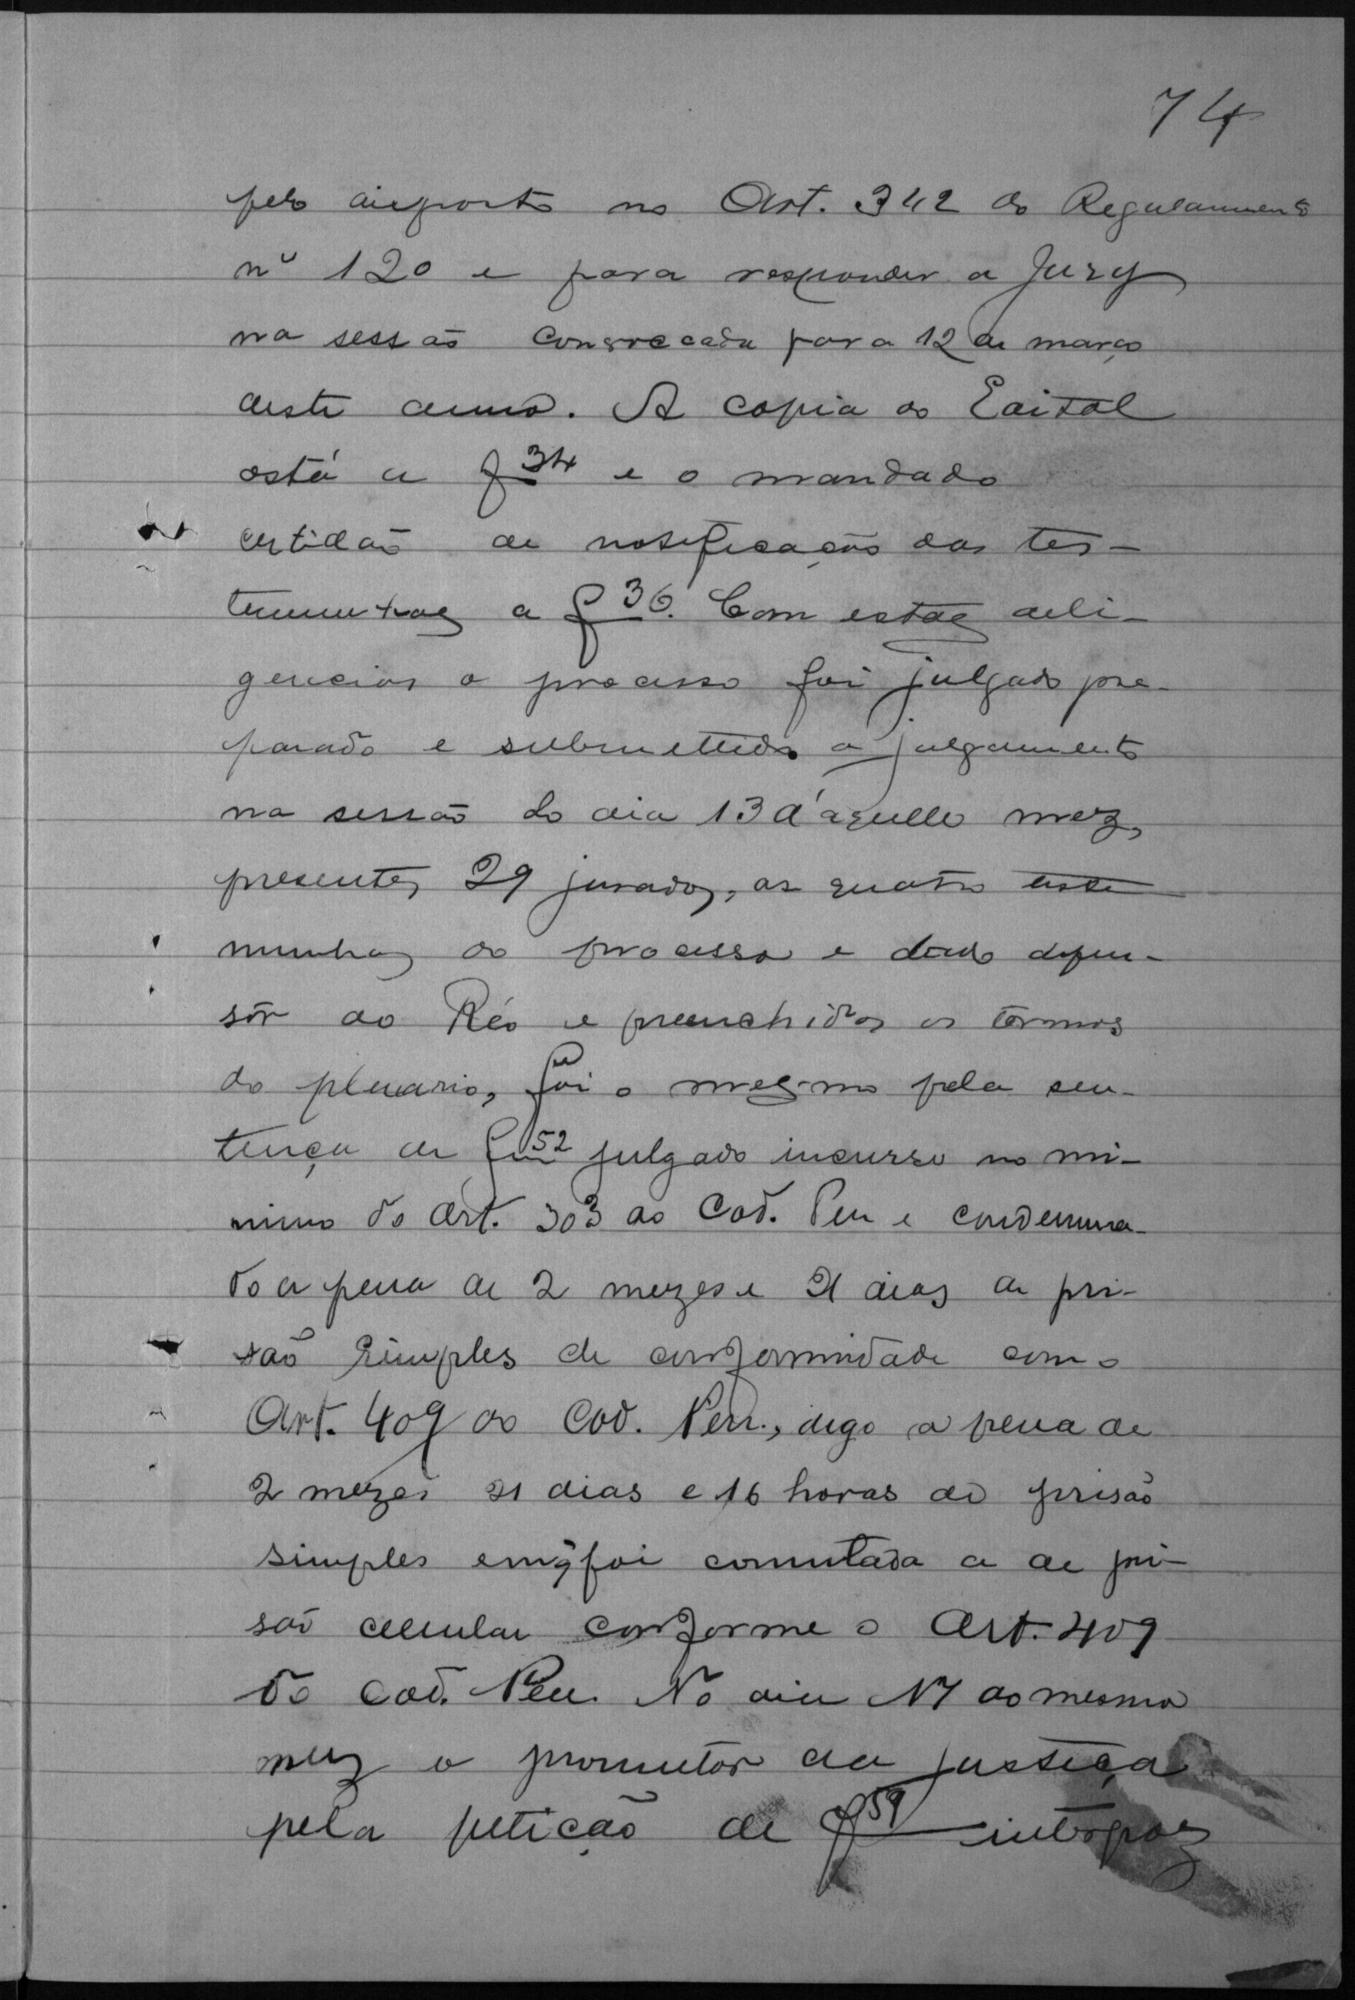 74
pelo disposto no Art. 342 do Regulamento
nº 120 e para responder a Jury
na sessão convocada para 12 de março
deste anno. A copia do Edital
está a f 34 e o mandado
certidão de notificação das tes-
temunhas a f 36. Com estas deli-
gencias o processo foi julgado pre-
parado e submettido a julgamento
na sessão do dia 13 d'aquelle mez,
presentes 29 jurados, as quatro teste
munhas do processo e dado defen-
sôr ao Réo e preenchidos os termos
do plenario, foi o mesmo pela sen-
tença de f 52 julgado incurso no mi-
nimo do Art. 303 do Cod. Pen e condemna-
do a pena de 2 mezes e 21 dias de pri-
são simples de conformidade com o
Art. 409 do Cod. Pen., digo a pena de
2 mezes 21 dias e 16 horas de prisão
simples em q foi comutada a de pri-
são cellular conforme o Art. 409
do Cod. Pen. No dia 17 do mesmo
mez o promotor da justiça
pela petição de f 59 interpoz